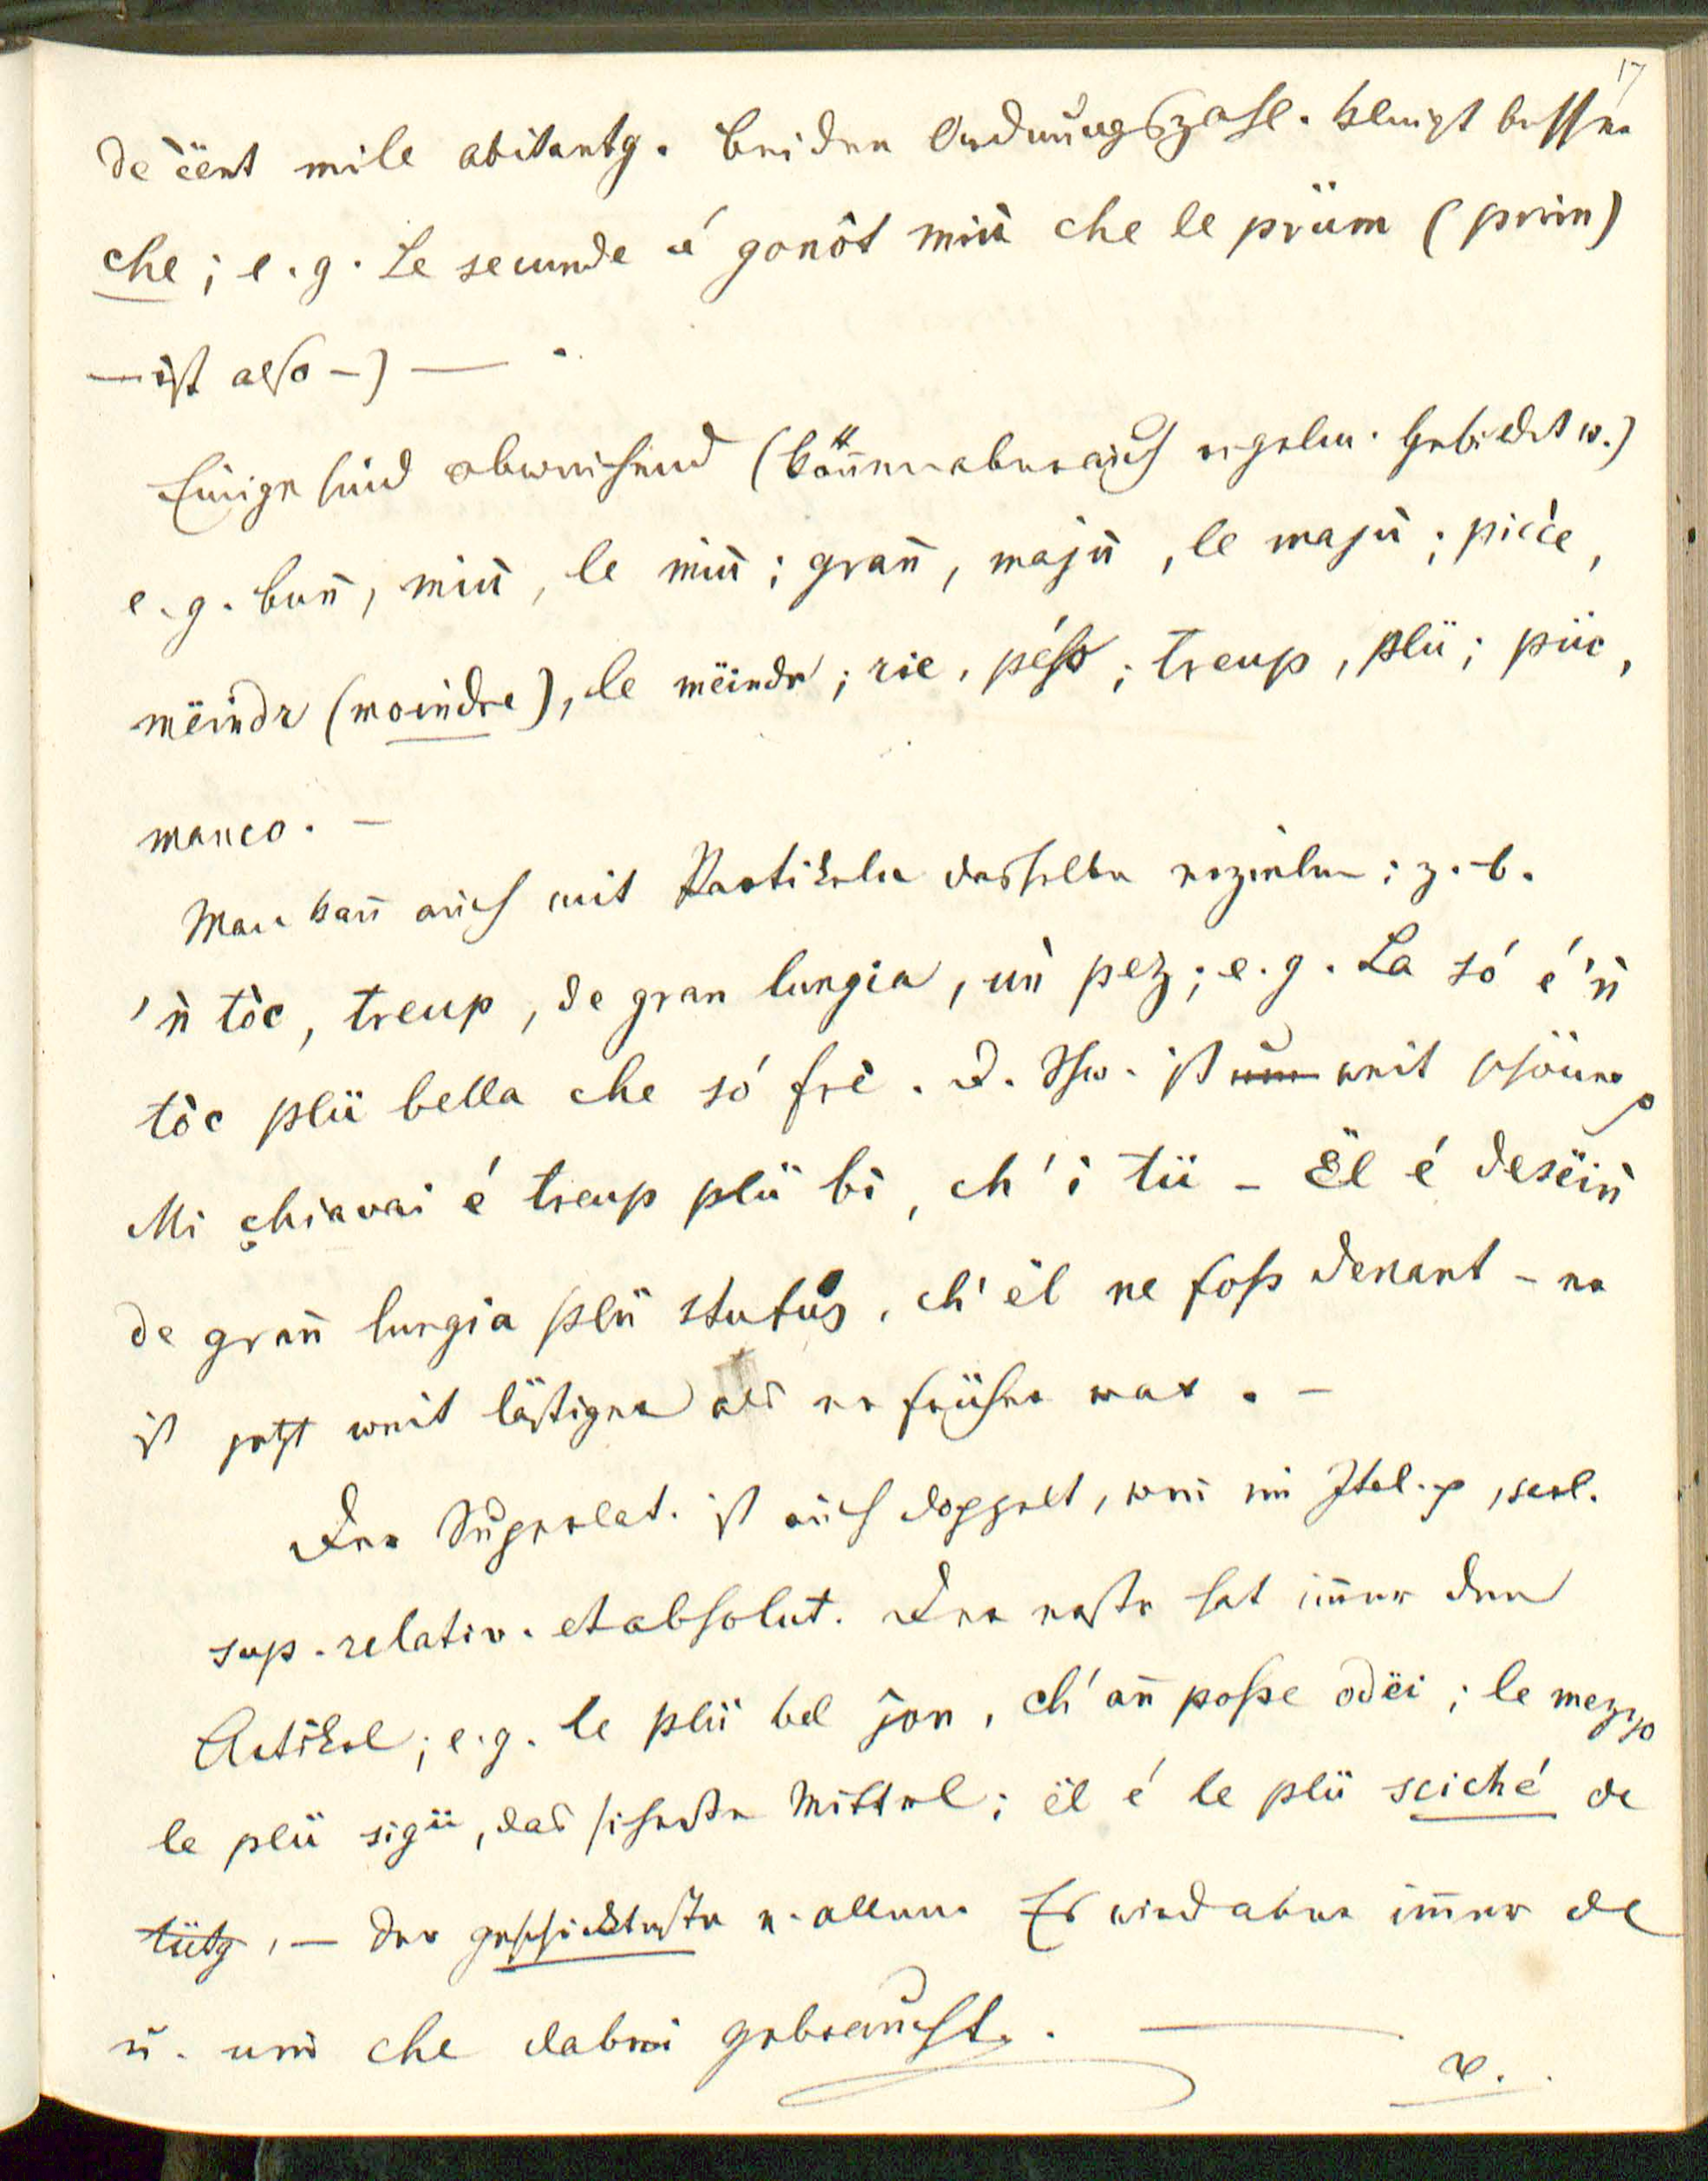 17
de c̈ënt mile abitantg. bei den Ordnungszahl. klingt besser
che; e. g. Le secunde é gonót miù che le prüm (prim)
— ist also —) —.
Einige sind abweichend (können aber auch regelm. gebildet w.)
e. g. bun̄, miù, le miù; gran̄, majù, le majù; picce,
mëindr (moindre), le mëindr; rie, péſs; treup, plü; püc,
manco. —
Man kan̄ auch mit Partikeln dasselbe erzielen; z. b.
'ǹ tòc, treup, de gran lungia, uǹ pez; e. g. La só é 'ǹ
tòc plü bella che só frè. d. Schw. ist weit schöner
Mi chiavai é treup plü bi, ch' i tü — Ël é desëiǹ
de gran̄ lungia plü stufùs, ch' ël ne foſs denant — er
ist jetzt weit lästiger als er früher war. —
Der Superlat. ist auch doppelt, wie im Ital. , scil.
sup. relativ. et absolut. Der erste hat im̄er den
Artikel; e. g. le plü bel jon, ch' an̄ poſse odëi; le mezzo
le plü sigü, das sicherste Mittel; ël é le plü sciché de
tütg, — der geschickteste v. allen. Es wird aber im̄er de
u. nie che dabei gebraucht. —